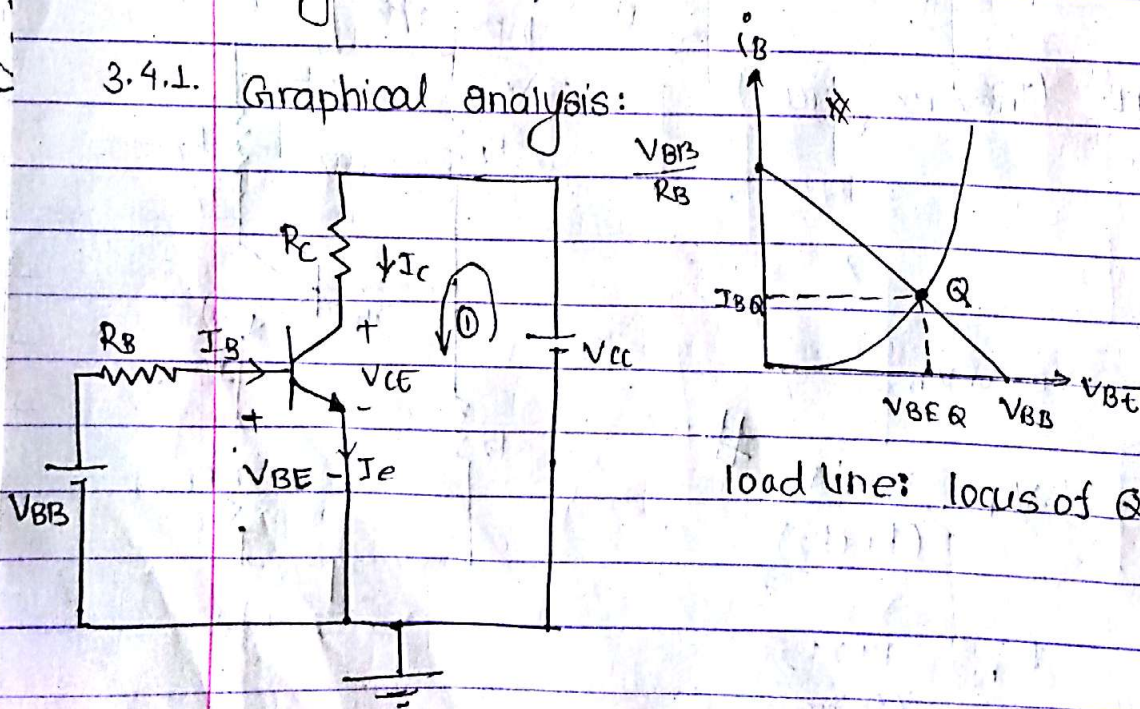 3.4.1. Graphical analysis:
iB
VBB
RB
RC
↓Ic
①
+
VCE
-
VCC
RB
IB
+
VBE
-
Ie
VBB
IBQ
Q
VBEQ
VBB
VBE
load line: locus of Q